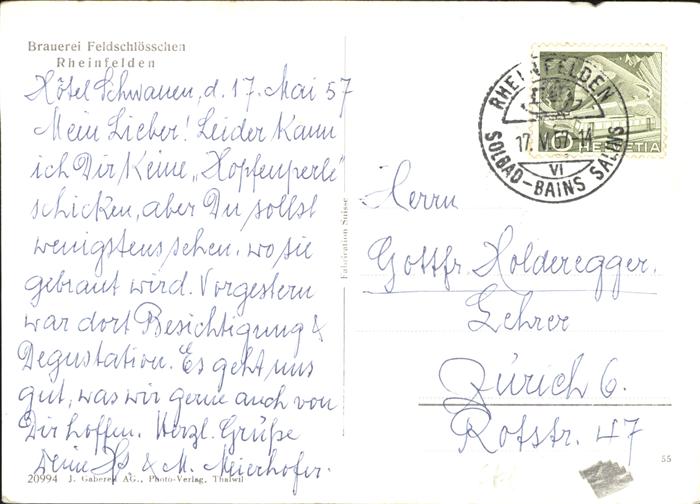 Brauerei Feldschlösschen
Rheinfelden
Hôtel Schwanen, d. 17. Mai 57
Mein Lieber! Leider kann
ich Dir keine „Hopfenperle"
schicken, aber Du sollst
wenigstens sehen, wo sie
gebraut wird. Vorgestern
war dort Besichtigung &
Degustation. Es geht uns
gut, was wir gerne auch von
Dir hoffen. Herzl. Grüße
Deine & M. Meierhofer.
20994 J. Gaberell AG., Photo-Verlag, Thalwil
Fabrication Suisse
RHEINFELDEN
17.V.57-14
VI
SOLBAD-BAINS SALINS
HELVETIA
Herrn
Gottfr. Holderegger.
Lehrer
Zürich 6.
Rotstr. 47
55